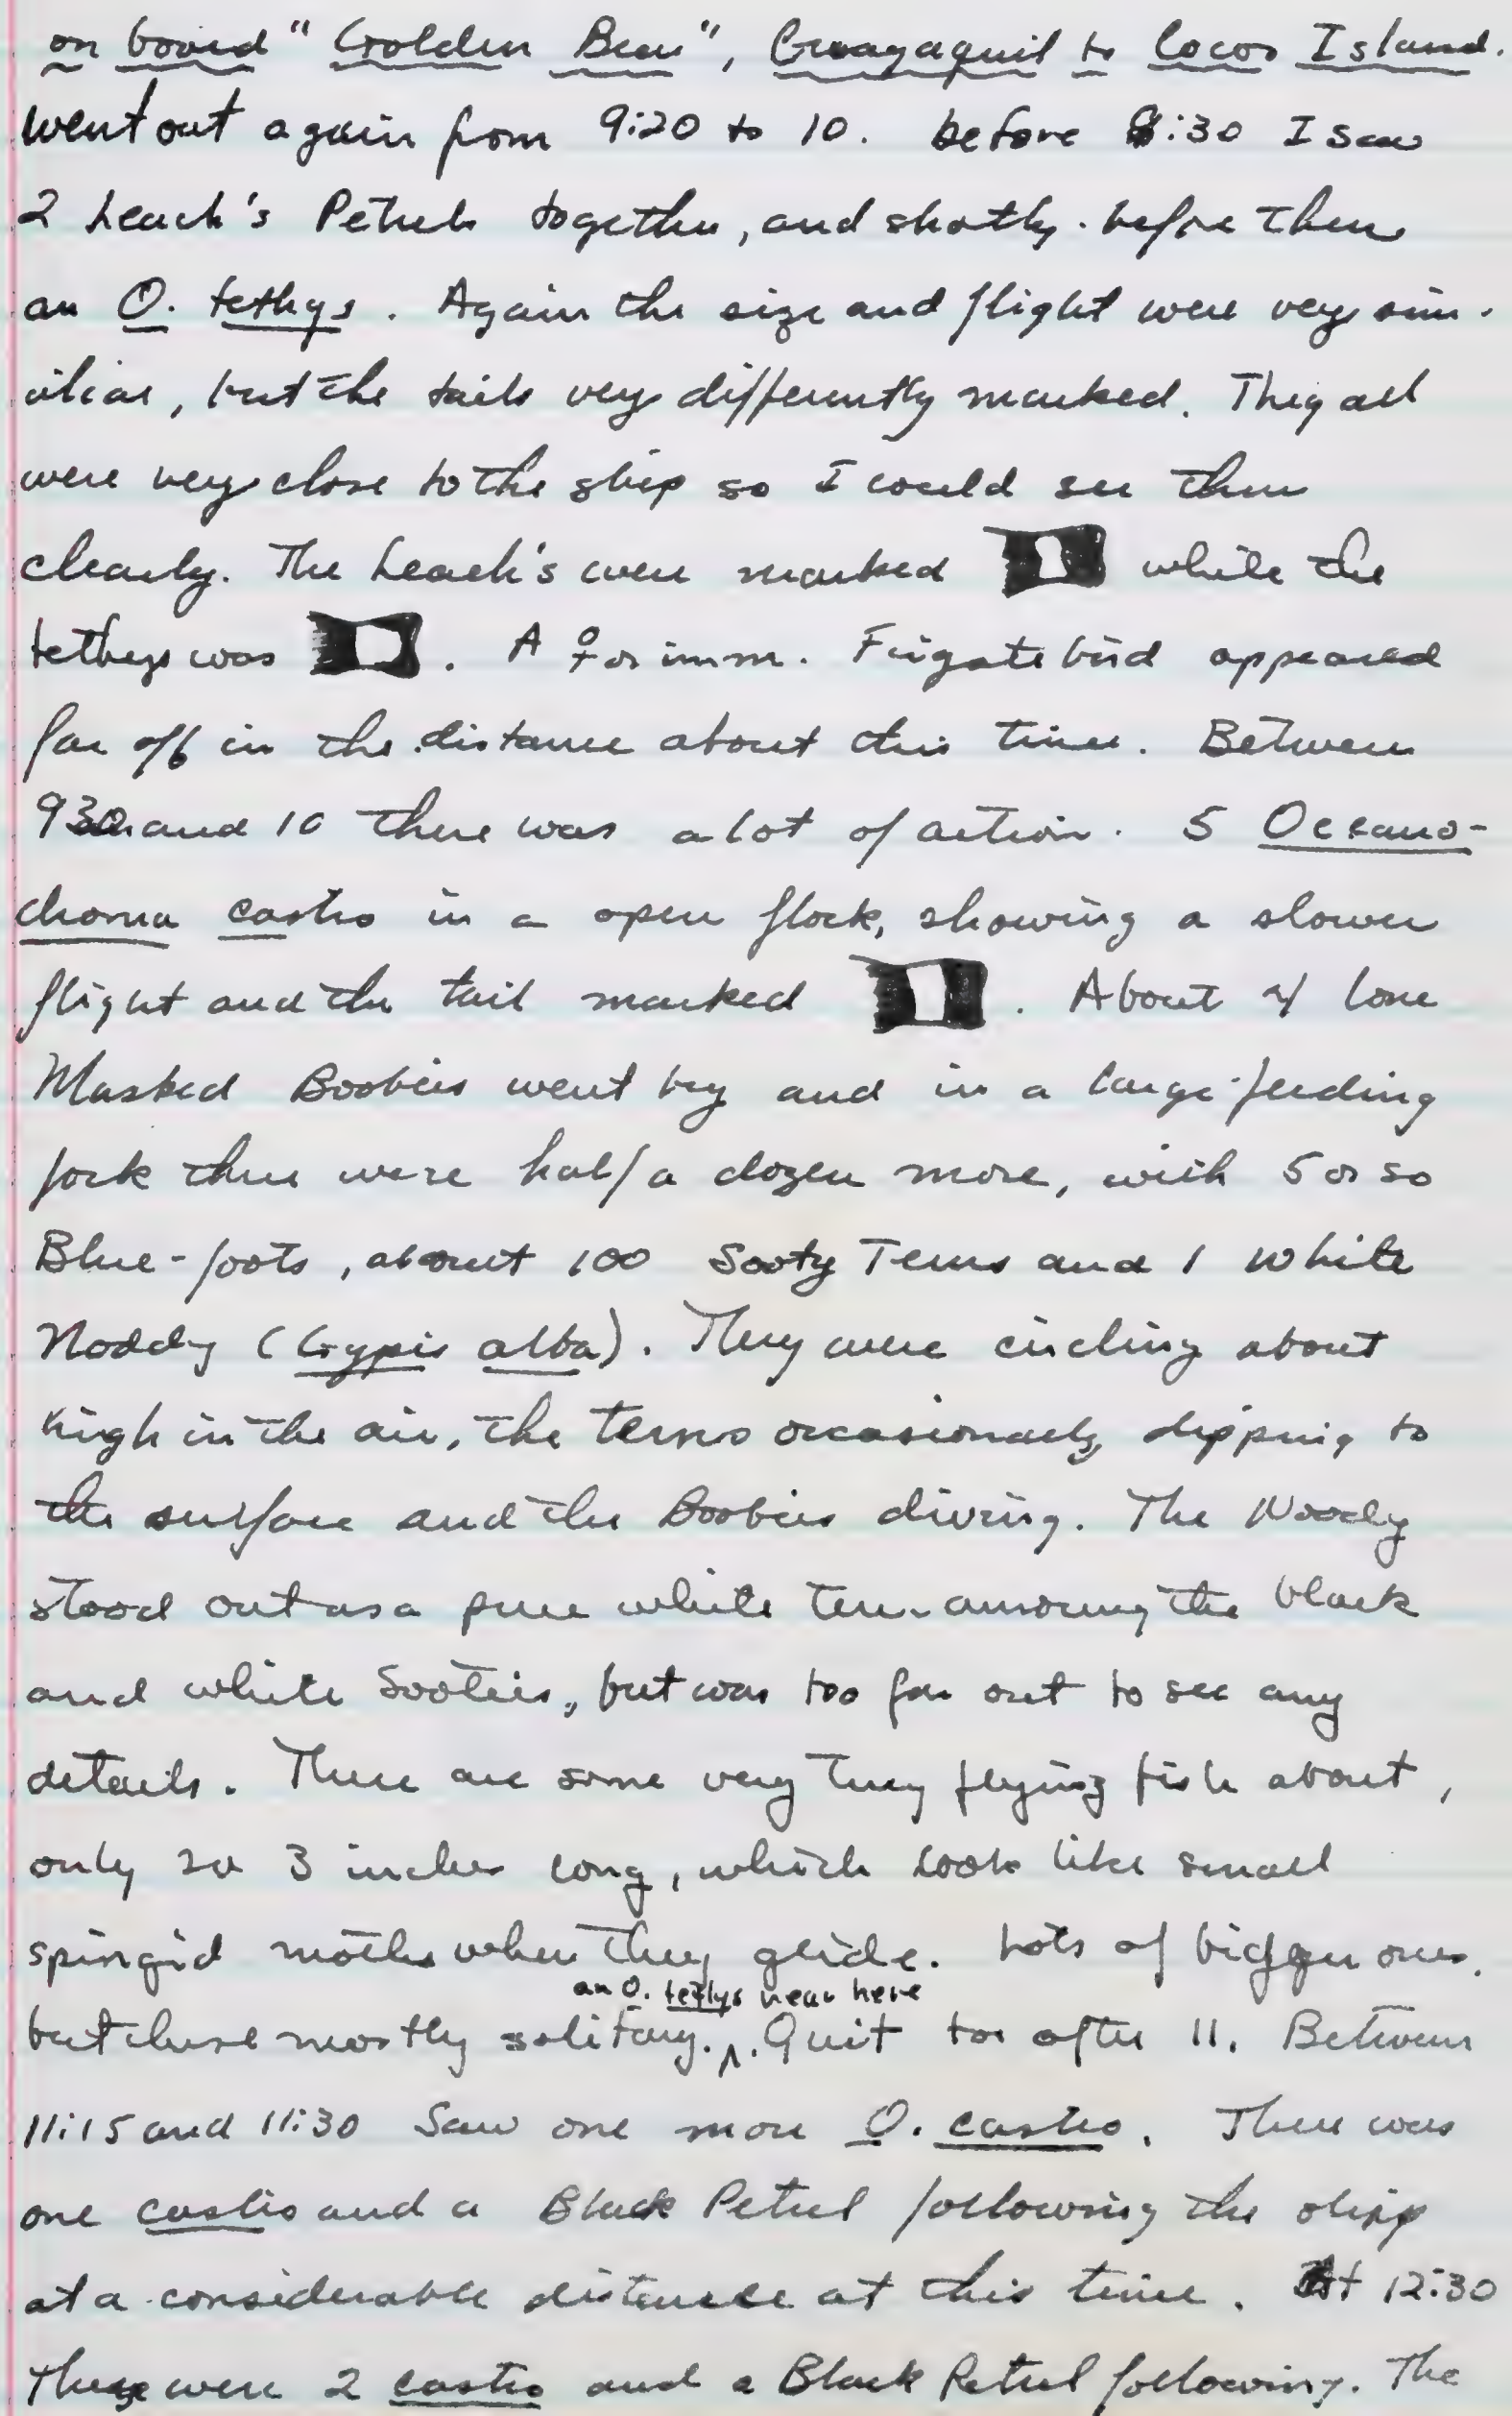 on board "Golden Bear", Guayaquil to Cocos Island.
went out again from 9:20 to 10. before 9:30 I saw
2 Leach's Petrels together, and shortly before them
an O. tethys. Again the size and flight were very sim-
iliar, but the tails very differently marked. They all
were very close to the ship so I could see them
clearly. The Leach's were marked while the
tethys was . A ♀ or imm. Frigatebird appeared
far off in the distance about this time. Between
930 and 10 there was a lot of action. 5 Oceano-
droma castro in a open flock, showing a slower
flight and the tail marked . About 4 lone
Masked Boobies went by and in a large feeding
flock there were half a dozen more, with 5 or so
Blue-foots, about 100 Sooty Terns and 1 White
Noddy (Gygis alba). They were circling about
high in the air, the terns occasionally dipping to
the surface and the Boobies diving. The Noddy
stood out as a pure white tern among the black
and white Sooties, but was too far out to see any
details. There are some very tiny flying fish about,
only 2 or 3 inches long, which look like small
spingid moths when they glide. Lots of bigger ones,
an O. tethys near here
but these mostly solitary. Quit after 11. Between
11:15 and 11:30 Saw one more O. castro. There was
one castro and a Black Petrel following the ship
at a considerable distance at this time. At 12:30
there were 2 castro and a Black Petrel following. The